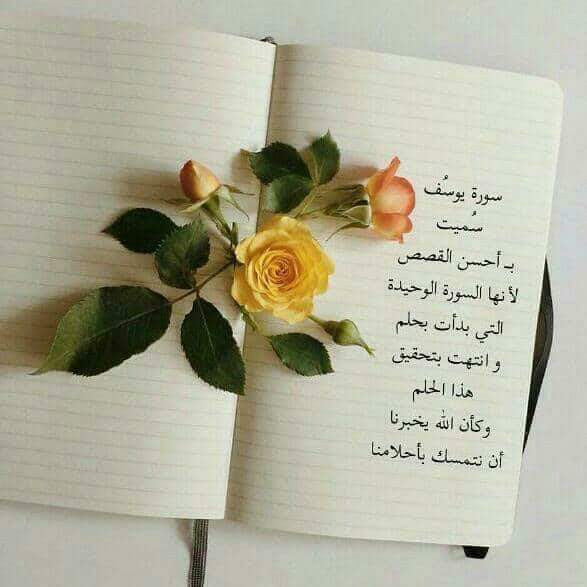 سورة يوسُف
سُميت
بـ أحسن القصص
لأنها السورة الوحيدة
التي بدأت بحلم
و انتهت بتحقيق
هذا الحلم
وكأن الله يخبرنا
أن نتمسك بأحلامنا